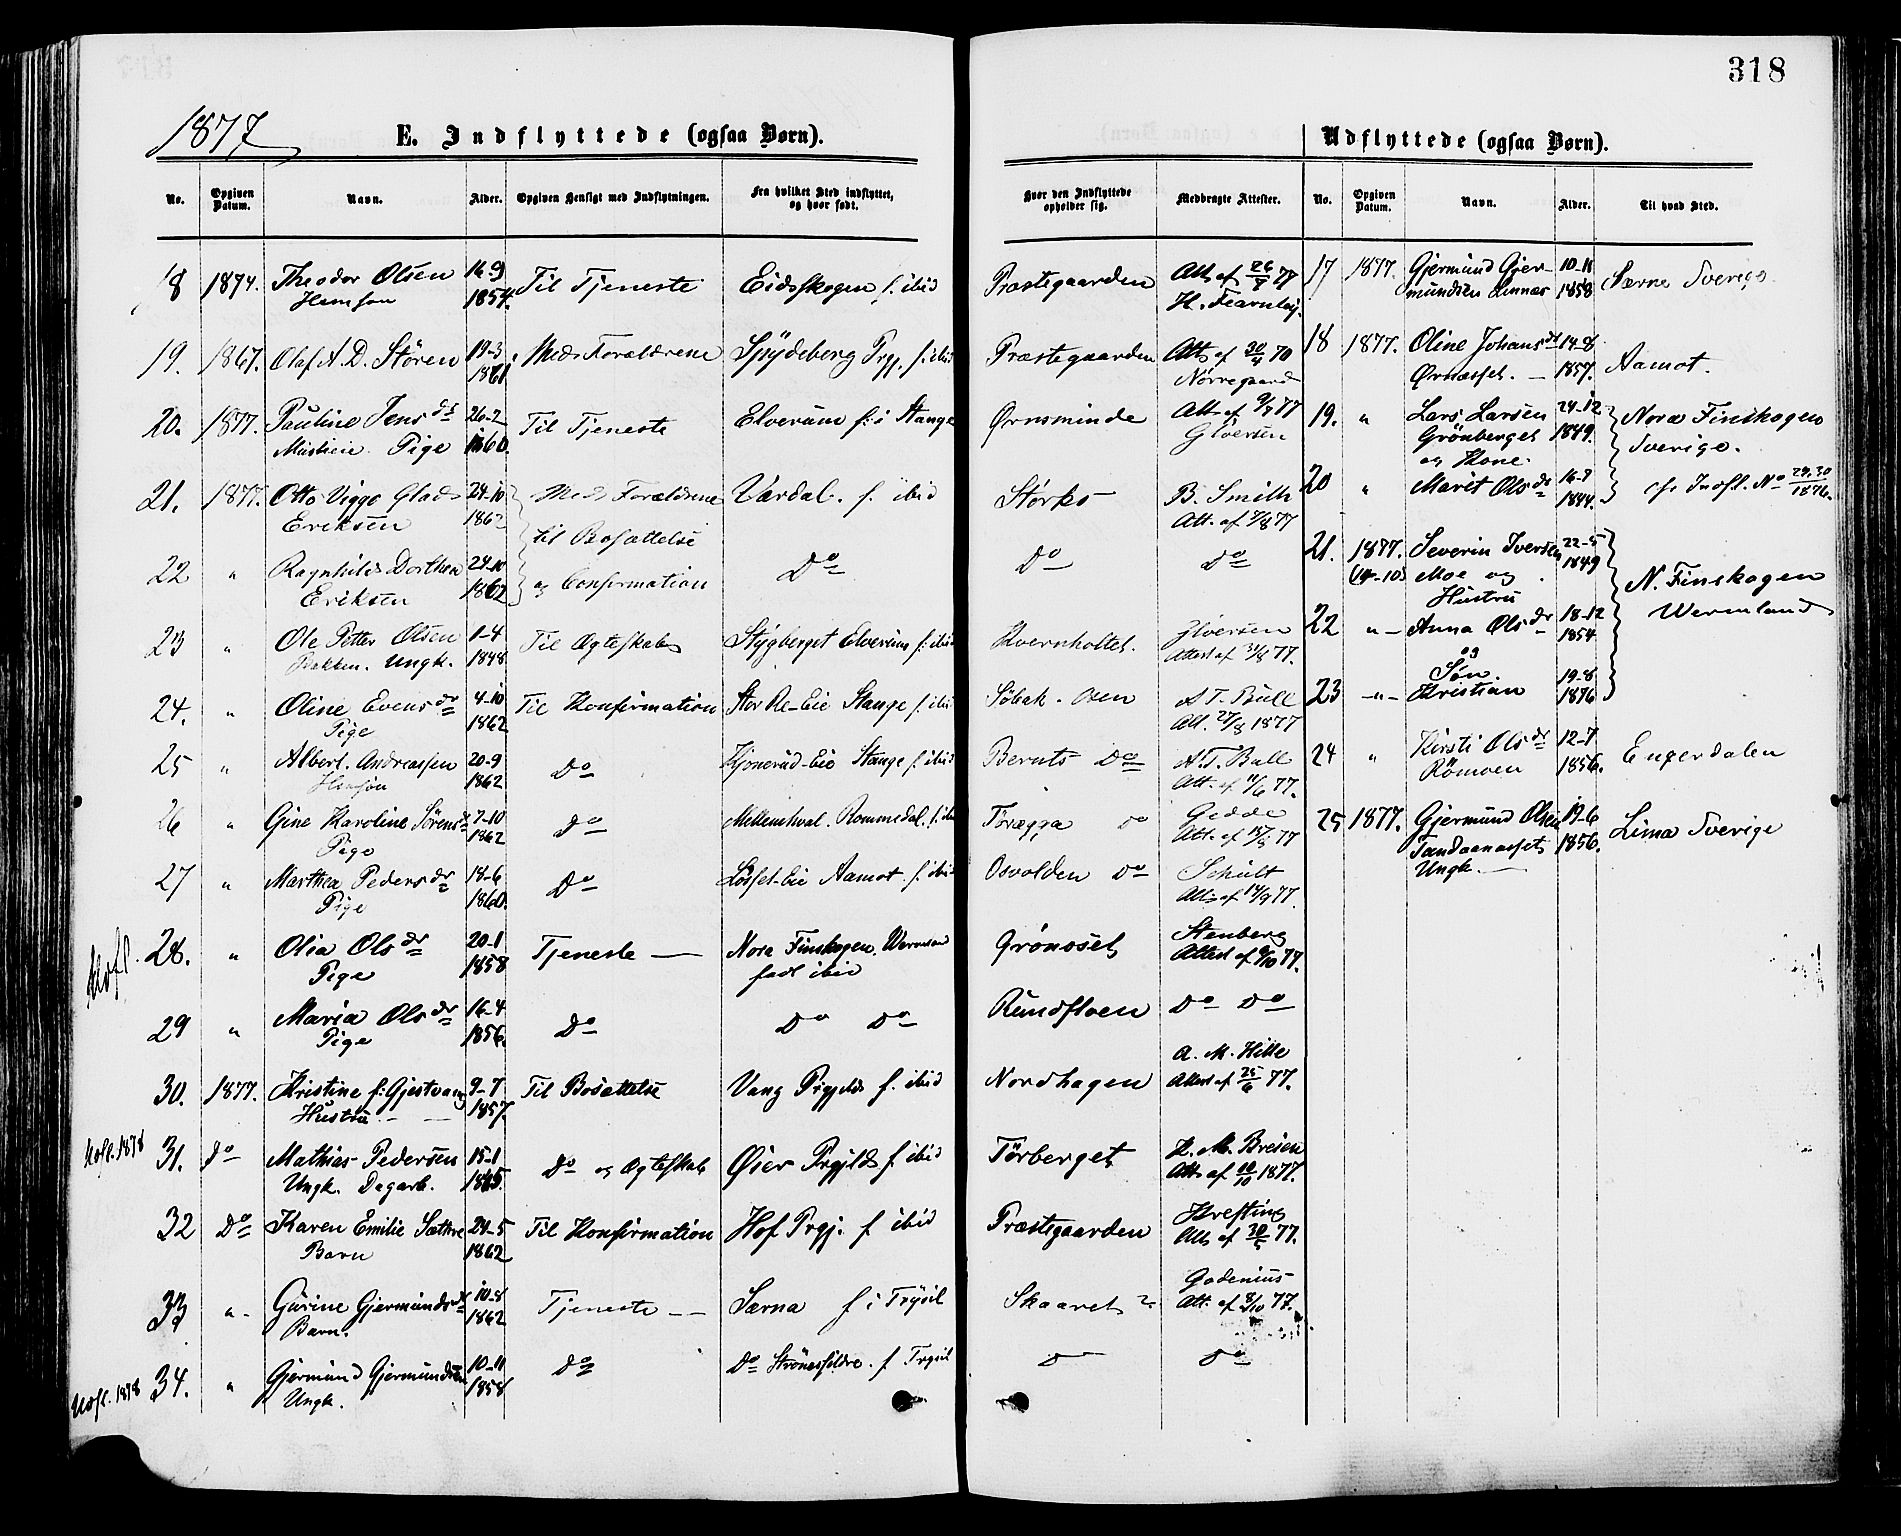 318
1877
E. Indflyttede (ogsaa Børn).
Udflyttede (ogsaa Børn).
No. Opgiven Datum. Navn. Alder. Opgiven Hensigt med Indflytningen. Fra hvilket Sted indflyttet, og hvor født. Hvor den Indflyttede opholder sig. Medbragte Attester.
18 1874. Theodor Olsen 16-9 Til Tjeneste Eidsskogen f. ibid Præstegaarden Att. af 26/7 77
1854. H. Fearnley.
19. 1867. Olaf A. D. Støren 19-3 Med Forældrene Spydeberg Prgj. f. ibid Præstegaarden Att. af 30/4 70
1861 Nørregaard
20. 1877. Pauline Jensdt 26-2 Til Tjeneste Elverum f. i Stange Ørnsminde Att. af 9/7 77
Pige 1860. Gløersen
21. 1877. Otto Viggo Glad 24-10 Med Forældrene Vardal. f. ibid Storko B. Smith
Eriksen 1862 til Bosættelse Att. af 7/8 77
22 " Ragnhild Dorthea 24-10 og Confirmation Do Do Do
Eriksen 1862
23 " Ole Petter Olsen 1-4 Til Ægteskab Stygberget Elverum f. ibid Kvernholtet. Gløersen
Bakken. Ungk. 1848 Attest af 31/8 77.
24. " Oline Evensdr 4-10 Til Konfirmation Stor Re-Eie Stange f. ibid Søbak. Osen A T. Bull
Pige 1862 Att. 27/8 1877
25 " Albert Andreassen 20-9 Do Kjonerud-Eie Stange f. ibid Bernts Do A. T. Bull
1862 Att. af 11/6 77.
26 " Gine Karoline Sørensd 7-10 Do Rommedal. f. ibid Torægga Do Gedde
Pige 1862 Att. af 15/8 77
27 " Marthea Pedersdr 18-6 Do Løsset-Eie Aamot. f. ibid Osvolden Do Schult
Pige 1860. Att. af 14/9 77.
28. " Olia Olsdr 20-1 Tjeneste Nora Finskogen. Wermland Grønoset Stenberg
Pige 1858 født ibid Attest af 9/10 77.
29 " Maria Olsdr 16-4 Do Do Do Rundfloen Do Do
Pige 1856.
30. 1877. Kristine f. Gjestvang 9-7 Til Bosættelse Vang Prgjeld f. ibid Nordhagen A. M. Hille
Hustru 1857. Attest af 25/6 77.
Udfl. 1878 31. Do Mathias Pedersen 15-1 Do og Ægteskab Øier Prgjld f. ibid Tørberget H. M. Breien
Ungk. Dagarb. 1845. Att. af 10/10 1877.
32 Do Karen Emilie Sæthre 24-5 Til Konfirmation Hof Prgj. f ibid Præstegaarden Krefting
Barn 1862 Att. af 30/5 77.
33 " Gurine Gjermundsdt 10-8 Tjeneste Særna f i Trysil Skaaret Godenius
Barn. 1862 Att. af 8/10 77.
Udfl. 1878 34. " Gjermund Gjermundsen 10-11 Do Do f Trysil Do Do
Ungk. 1858
No. Opgiven Datum. Navn. Alder. Til hvad Sted.
17 1877. Gjermund Gjer- 10-11 Særna Sverige
mundsen Linnæs 1858
18 1877. Oline Johansdt 14-8 Aamot.
Ørnæsset. 1857.
19. " Lars Larsen 24-12 Nora Finskogen
Grønberget 1849. Sverige.
og Kone
20 " Marit Olsdr 16-7 cfr Indfl. No 29.30/1876.
1844.
21. 1877. Severin Iversen 22-5 N. Finskogen
(14-10) Moe og 1849 Wermland
Hustru
22 " Anna Olsdr 18-12
1854.
og
Søn.
23 " Kristian 19-8
1876
24 " Kirsti Olsdr 12-7 Engerdalen
Rømoen 1856.
25 1877. Gjermund Olsen 19-6 Lima Sverige
Tandaanæsset 1856.
Ungk.